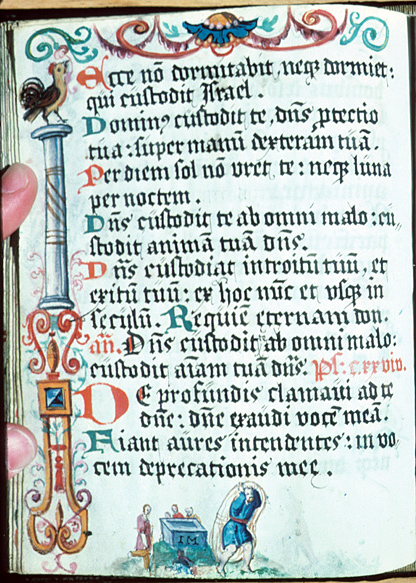 Ecce nō dormitabit, neqꝫ dormiet:
qui custodit Israel.
Dominꝰ custodit te, dn̄s ꝓtectio
tua: super manū dexteram tuā.
Per diem sol nō vret te: neqꝫ luna
per noctem.
Dn̄s custodit te ab omni malo: cu
stodit animā tuā dn̄s.
Dn̄s custodiat introitū tuū, et
exitū tuū: ex hoc nūc et vsqꝫ in
seculū. Requiē eternam don.
an̄. Dn̄s custodit ab omni malo:
custodit aīam tuā dn̄s. Ps: cxxviiii.
DE profundis clamaui ad te
dn̄e: dn̄e exaudi vocē meā.
Fiant aures intendentes: in vo-
cem deprecationis mee.
IM